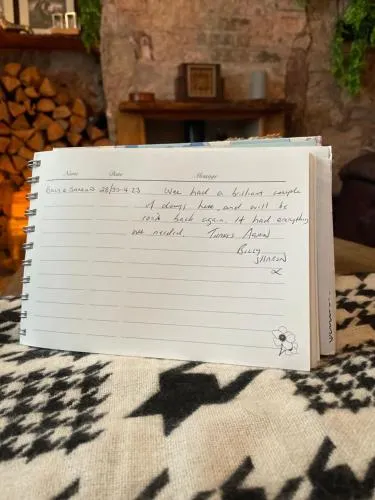 Name Date Message
& SHARON 28/30-4-23 Wee had a brilliant couple
of days here, and will be
back again. It had everything
we needed. THANKS AGAIN
BILLY
SHARON
x